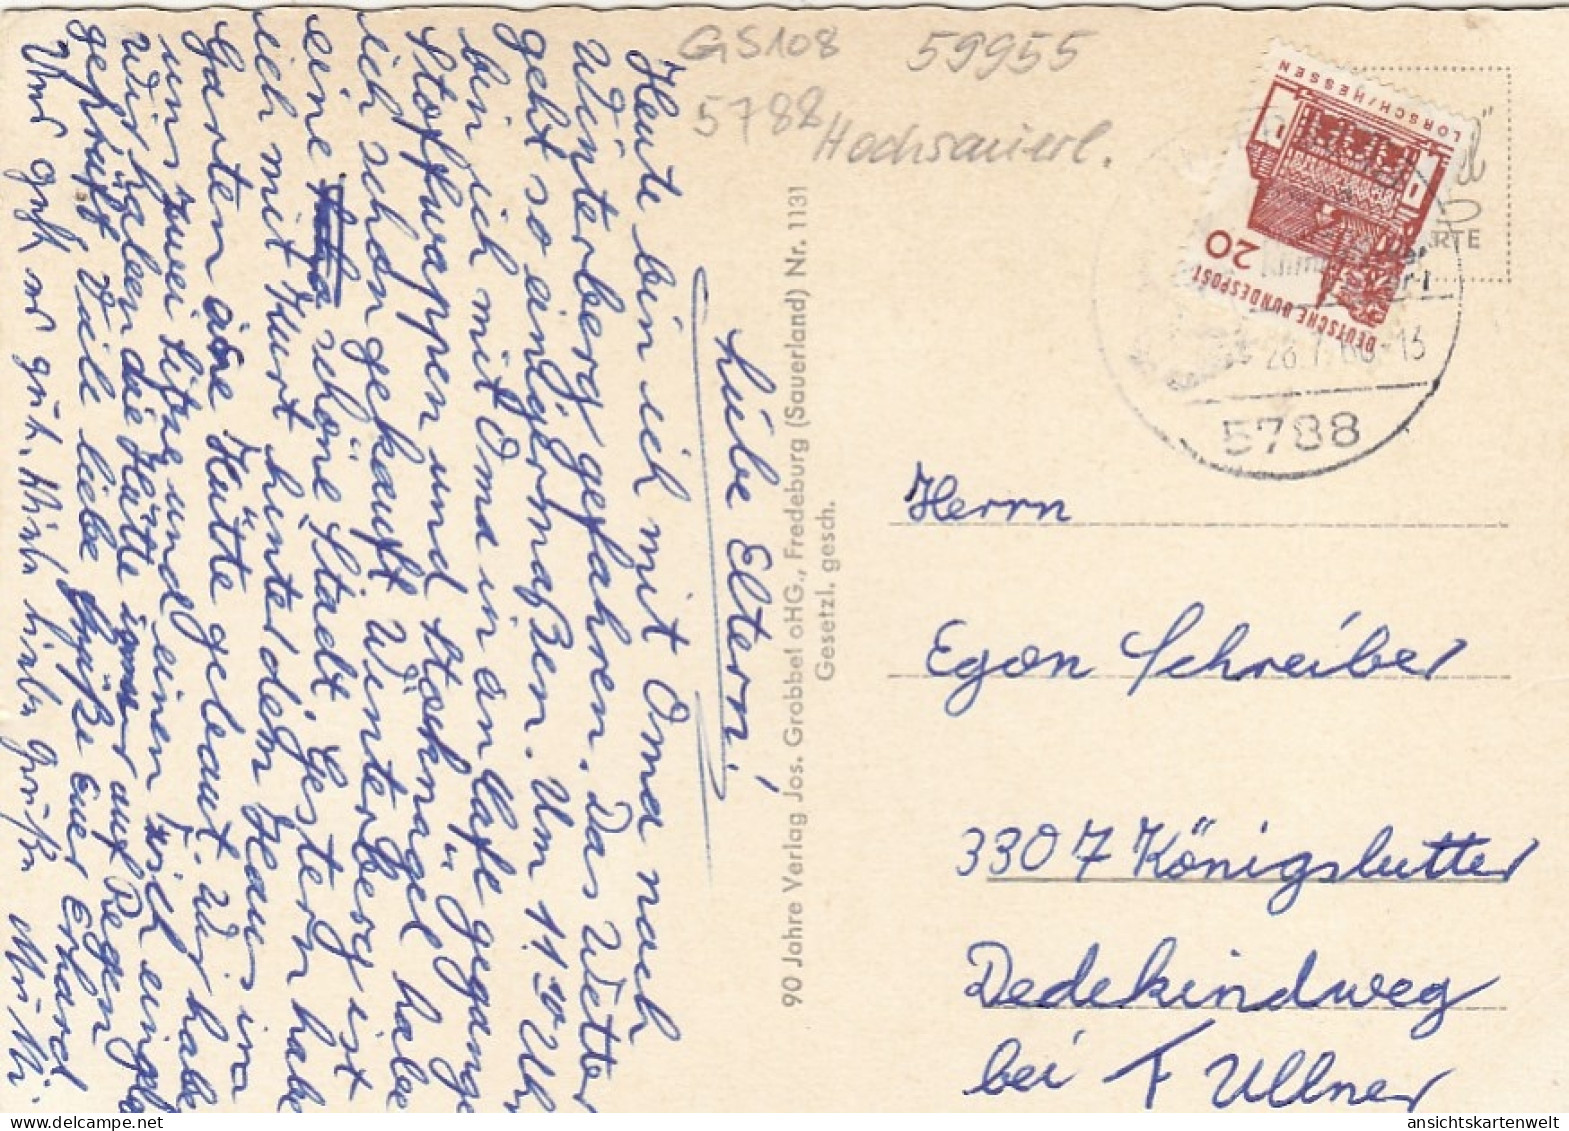 GS108 59955
5788 Hochsauerl.
LORSCH/HESSEN
20
DEUTSCHE BUNDESPOST
RTE
13
5788
Liebe Eltern!
Heute bin ich mit Oma nach
Winterberg gefahren. Das Wetter
geht so einigermaßen. Um 11.30 Uhr
bin ich mit Oma in ein Cafe gegangen
Stoffwappen und Stocknagel habe
ich schon gekauft. Winterberg ist
eine schöne Stadt. Gestern habe
ich mit Kurt hinter dem Haus im
Garten eine Hütte gebaut. Wir haben
uns zwei Sitze und einen
Wir haben die Hütte auf Regen
geprüft. Viele liebe Grüße Euer Erhard
Uns geht es gut. Viele liebe Grüße Mutti.
90 Jahre Verlag Jos. Grobbel oHG., Fredeburg (Sauerland) Nr. 1131
Gesetzl. gesch.
Herrn
Egon Schreiber
3307 Königslutter
Dedekindweg
bei F Ullner
ansichtskartenwelt.com